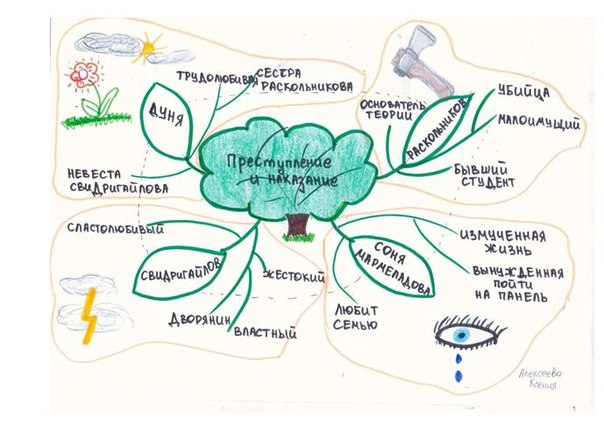 Преступление
и наказание
ДУНЯ
ТРУДОЛЮБИВАЯ
СЕСТРА
РАСКОЛЬНИКОВА
НЕВЕСТА
СВИДРИГАЙЛОВА
РАСКОЛЬНИКОВ
ОСНОВАТЕЛЬ
ТЕОРИИ
УБИЙЦА
МАЛОИМУЩИЙ
БЫВШИЙ
СТУДЕНТ
СВИДРИГАЙЛОВ
СЛАСТОЛЮБИВЫЙ
ЖЕСТОКИЙ
ДВОРЯНИН
ВЛАСТНЫЙ
СОНЯ
МАРМЕЛАДОВА
ИЗМУЧЕННАЯ
ЖИЗНЬ
ВЫНУЖДЕННАЯ
ПОЙТИ
НА ПАНЕЛЬ
ЛЮБИТ
СЕМЬЮ
Алексеева
Ксения